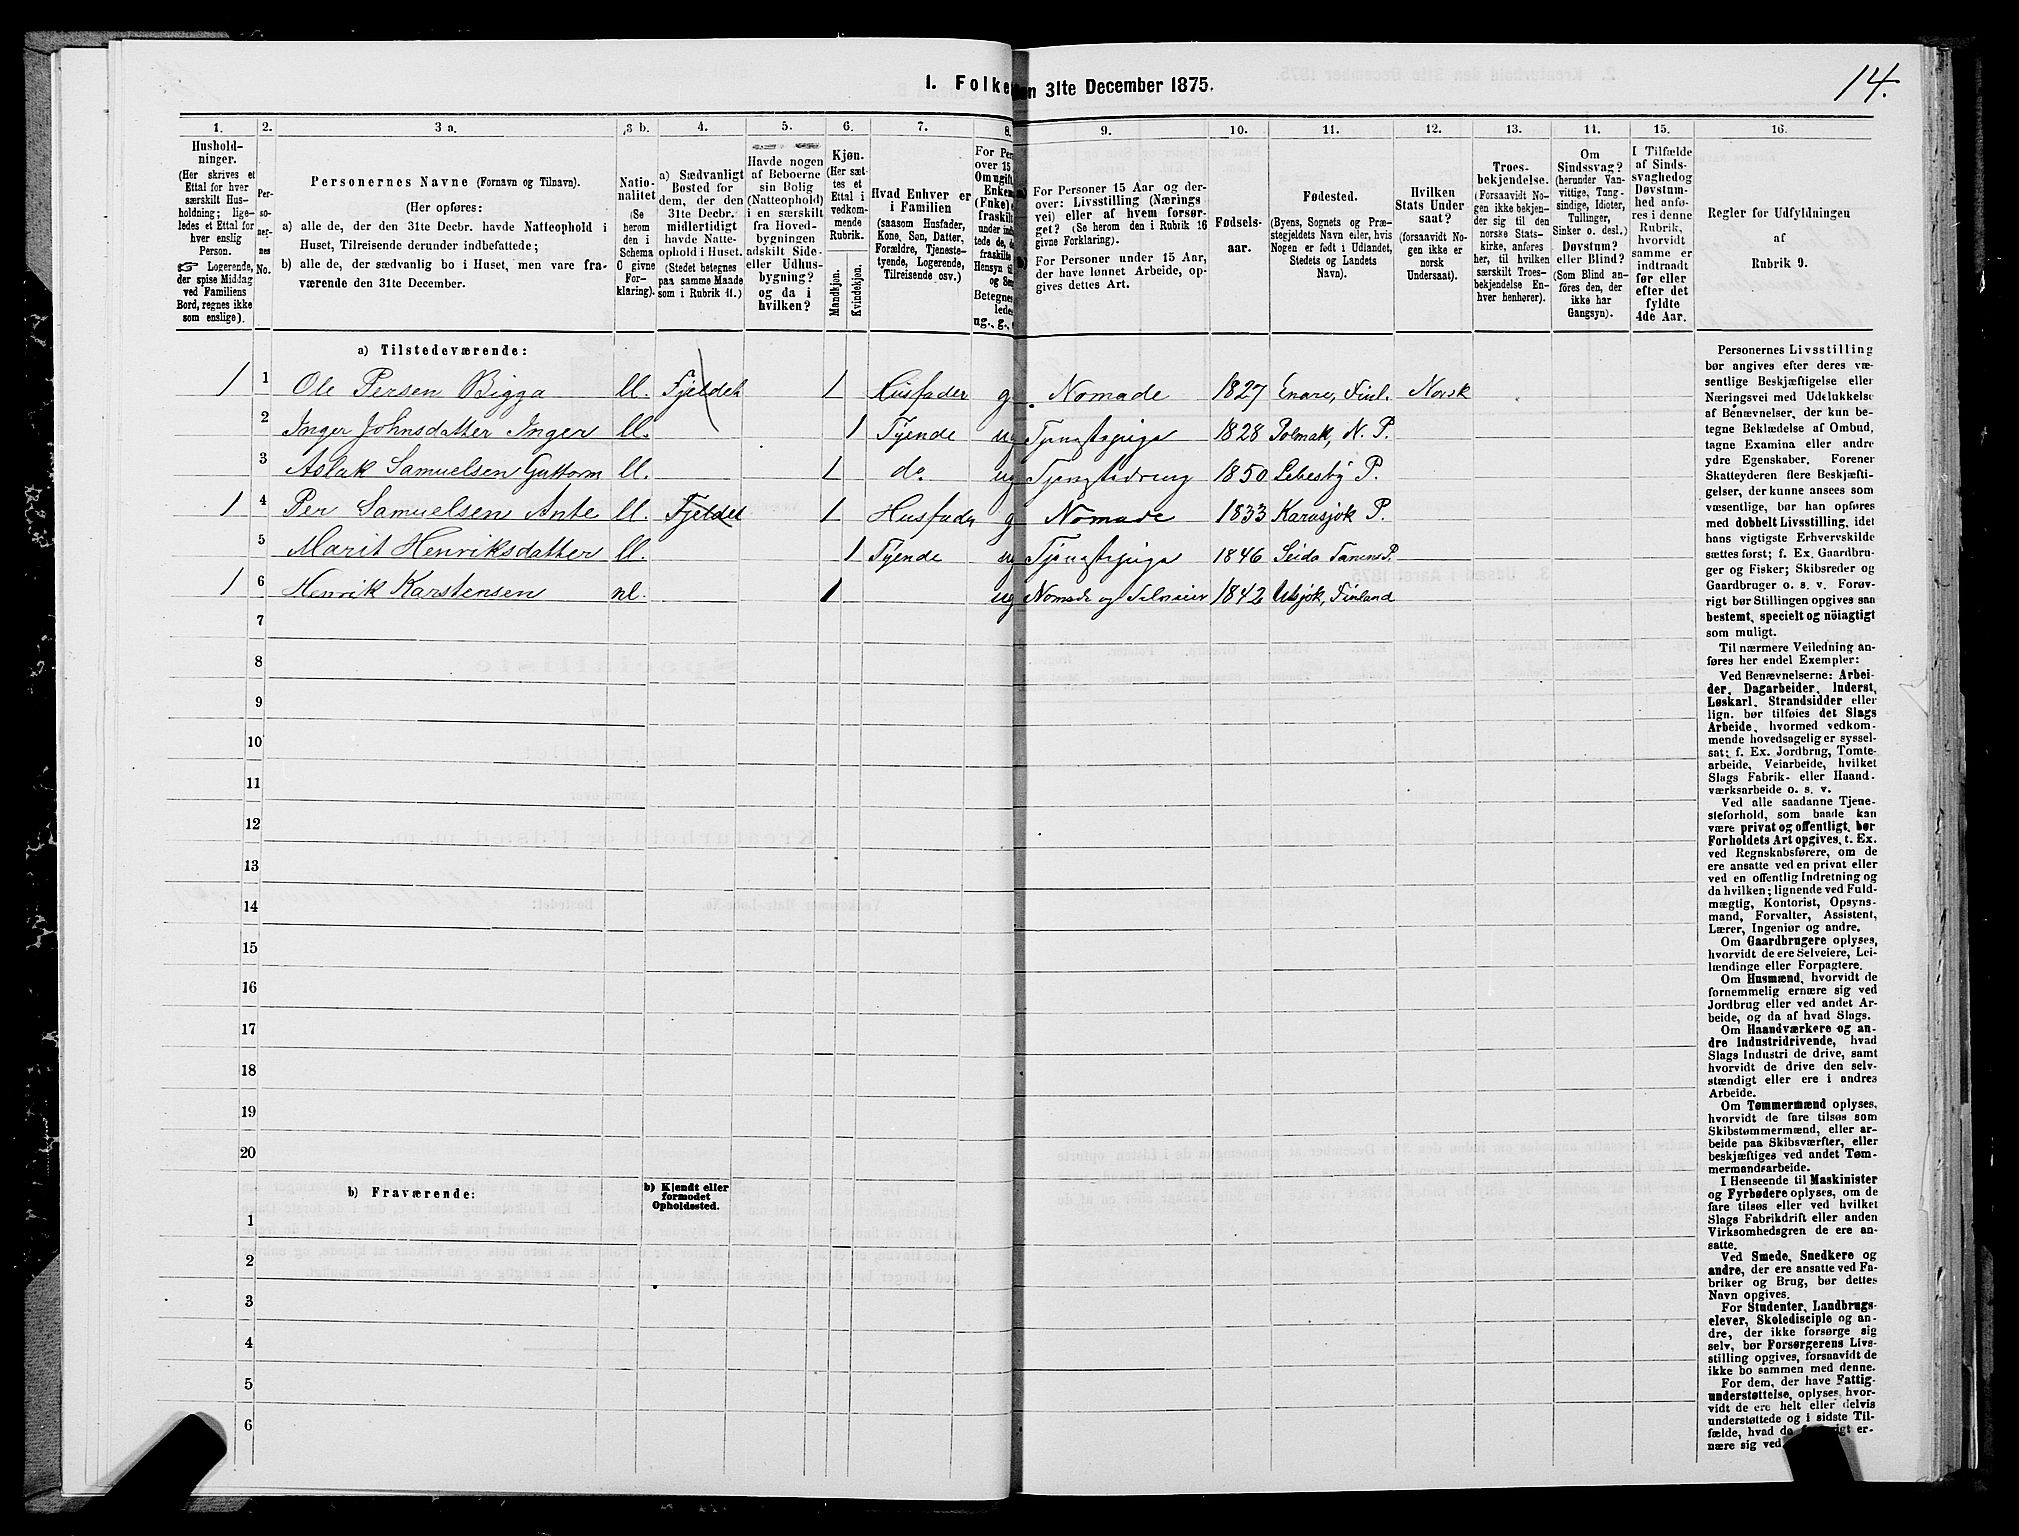 1. Folke
en 31te December 1875.
14.
1.
2.
3 a.
3 b.
4.
5.
6.
7.
8.
9.
10.
11.
12.
13.
14.
15.
16.
Hushold-
ninger.
(Her skrives et
Ettal for hver
særskilt Hus-
holdning; lige-
ledes et Ettal for
hver enslig
Person.
☞ Logerende,
der spise Middag
ved Familiens
Bord, regnes ikke
som enslige).
Per-
so-
ner-
nes
No.
Personernes Navne (Fornavn og Tilnavn).
(Her opføres:
a) alle de, der den 31te Decbr. havde Natteophold i
Huset, Tilreisende derunder indbefattede;
b) alle de, der sædvanlig bo i Huset, men vare fra-
værende den 31te December.
Natio-
nalitet
(Se
herom
den i
Schema
C givne
For-
klaring).
a) Sædvanligt
Bosted for
dem, der den
31te Decbr.
midlertidigt
havde Natte-
ophold i Huset.
(Stedet betegnes
paa samme Maade
som i Rubrik 11.)
Havde nogen
af Beboerne
sin Bolig
(Natteophold)
i en særskilt
fra Hoved-
bygningen
adskilt Side-
eller Udhus-
bygning?
og da i
hvilken?
Kjøn.
(Her sæt-
tes et
Ettal i
vedkom-
mende
Rubrik.
Mandkjøn.
Kvindekjøn.
Hvad Enhver er
i Familien
(saasom Husfader,
Kone, Søn, Datter,
Forældre, Tjeneste-
tyende, Logerende,
Tilreisende osv.)
For Per
over 15
Om ugift,
Enken
(Fnke) e
fraskilt
under ind
tede de, d
fraskilte
Hensyn til
og Sen
Betegnes
ledes
ug., g.,
For Personer 15 Aar og der-
over: Livsstilling (Nærings
vei) eller af hvem forsør-
get? (Se herom den i Rubrik 16
givne Forklaring).
For Personer under 15 Aar,
der have lønnet Arbeide, op-
gives dettes Art.
Fødsels-
aar.
Fødested.
(Byens, Sognets og Præ-
stegjeldets Navn eller, hvis
Nogen er født i Udlandet,
Stedets og Landets
Navn).
Hvilken
Stats Under
saat?
(forsaavidt No-
gen ikke er
norsk
Undersaat).
Troes-
bekjendelse.
(Forsaavidt No-
gen ikke bekjen-
der sig til den
norske Stats-
kirke, anføres
her, til hvilken
særskilt Troes-
bekjendelse En-
hver henhører).
Om
Sindssvag?
(herunder Van-
vittige, Tung-
sindige, Idioter,
Tullinger,
Sinker o. desl.)
Døvstum?
eller Blind?
(Som Blind an-
føres den, der
ikke har
Gangsyn).
I Tilfælde
af Sinds-
svaghed og
Døvstum-
hed anfø-
res i denne
Rubrik,
hvorvidt
samme er
indtraadt
før eller
efter det
fyldte
4de Aar.
Regler for Udfyldningen
af
Rubrik 9.
a) Tilstedeværende:
1 1 Ole Persen Bigga ll. Fjeldet 1 Husfader g Nomade 1827 Enare, Finl. Norsk
2 Inger Johnsdatter Inger ll. 1 Tyende ug Tjenestepige 1828 Polmak, N. P.
3 Aslak Samuelsen Guttorm ll. 1 do ug Tjenestedreng 1850 Lebesby P.
1 4 Per Samuelsen Ante ll. Fjeldet 1 Husfader g Nomade 1833 Karasjok P.
5 Marit Henriksdatter ll. 1 Tyende ug Tjenestepige 1846 Seida Tanens P.
1 6 Henrik Karstensen nl. 1 ug Nomade og Selveier 1842 Utsjok, Finland
7
8
9
10
11
12
13
14
15
16
17
18
19
20
b) Fraværende:
b) Kjendt eller
formodet
Opholdssted.
1
2
3
4
5
6
Personernes Livsstilling
bør angives efter deres væ-
sentlige Beskjæftigelse eller
Næringsvei med Udelukkelse
af Benævnelser, der kun be-
tegne Beklædelse af Ombud,
tagne Examina eller andre
ydre Egenskaber. Forener
Skatteyderen flere Beskjæfti-
gelser, der kunne ansees som
væsentlige, bør han opføres
med dobbelt Livsstilling, idet
hans vigtigste Erhvervskilde
sættes først; f. Ex. Gaardbru-
ger og Fisker; Skibsreder og
Gaardbruger o. s. v. Forøv-
rigt bør Stillingen opgives saa
bestemt, specielt og nöiagtigt
som muligt.
Til nærmere Veiledning an-
føres her endel Exempler:
Ved Benævnelserne: Arbei-
der, Dagarbeider, Inderst,
Løskarl, Strandsidder eller
lign. bør tilføies det Slags
Arbeide, hvormed vedkom-
mende hovedsagelig er syssel-
sat; f. Ex. Jordbrug, Tomte-
arbeide, Veiarbeide, hvilket
Slags Fabrik- eller Haand-
værksarbeide o. s. v.
Ved alle saadanne Tjene-
steforhold, som baade kan
være privat og offentligt, bør
Forholdets Art opgives, t. Ex.
ved Regnskabsførere, om de
ere ansatte ved en privat eller
ved en offentlig Indretning og
da hvilken; lignende ved Fuld-
mægtig, Kontorist, Opsyns-
mand, Forvalter, Assistent,
Lærer, Ingeniør og andre.
Om Gaardbrugere oplyses,
hvorvidt de ere Selveiere, Lei-
lændinge eller Forpagtere.
Om Husmænd, hvorvidt de
fornemmelig ernære sig ved
Jordbrug eller ved andet Ar-
beide, og da af hvad Slags.
Om Haandværkere og an-
dre Industridrivende, hvad
Slags Industri de drive, samt
hvorvidt de drive den selv-
stændigt eller ere i andres
Arbeide.
Om Tømmermænd oplyses,
hvorvidt de fare tilsøs som
Skibstømmermænd, eller ar-
beide paa Skibsværfter, eller
beskjæftiges ved andet Tøm-
mermandsarbeide.
I Henseende til Maskinister
og Fyrbødere oplyses, om de
fare tilsøs eller ved hvilket
Slags Fabrikdrift eller anden
Virksomhedsgren de ere an-
satte.
Ved Smede, Snedkere og
andre, der ere ansatte ved Fa-
briker og Brug, bør dettes
Navn opgives.
For Studenter, Landbrugs-
elever, Skoledisciple og an-
dre, der ikke forsørge sig
selv, bør Forsørgerens Livs-
stilling opgives, forsaavidt de
ikke bo sammen med denne.
For dem, der have Fattig-
understøttelse, oplyses, hvor-
vidt de ere helt eller delvis
understøttede og i sidste Til-
fælde, hvad de er-
nære sig ved.